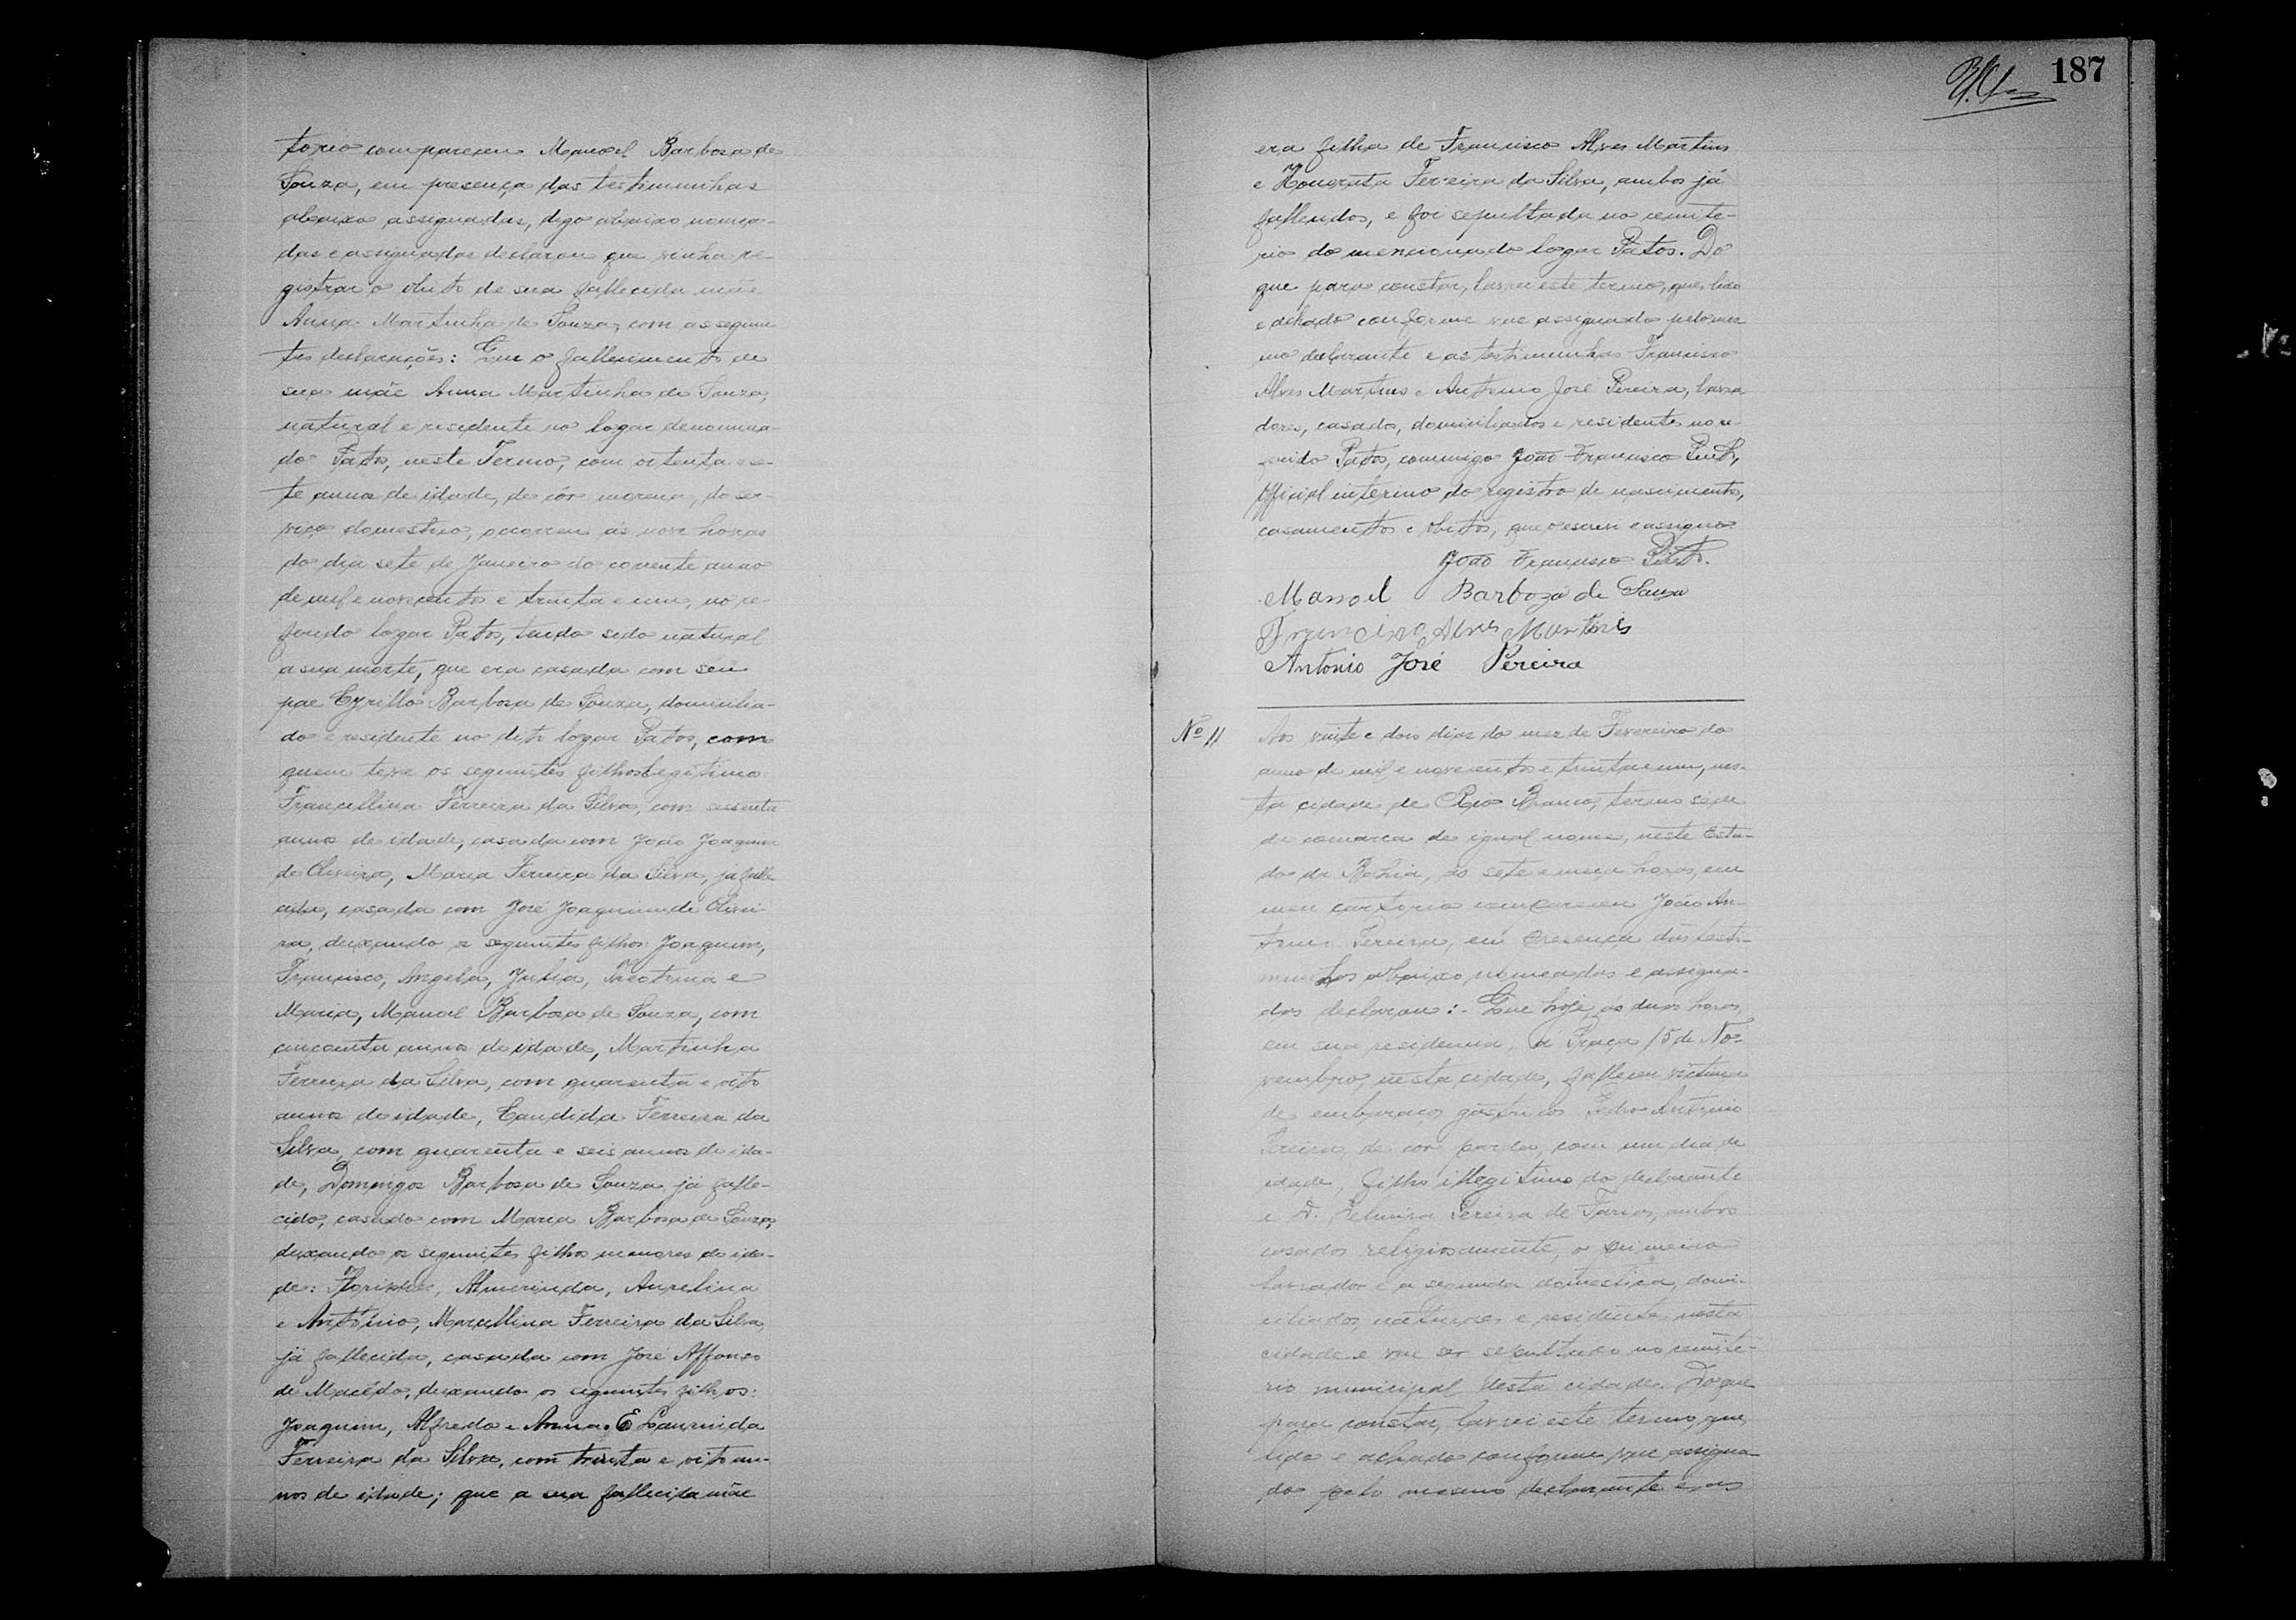 torio compareceu Manoel Barbosa de
Souza, em presença das testimunhas
abaixo assignadas, digo abaixo nomea-
das e assignadas declarou que vinha re-
gistrar o obito de sua fallecida mãe
Anna Martinha de Souza, com as seguin
tes declarações: Que o fallecimento de
sua mãe Anna Martinha de Souza,
natural e residente no logar denomina-
do Patos, neste Termo, com oitenta e se-
te annos de idade, de côr morena, do ser-
viço domestico, occorreu ás nove horas
do dia sete de Janeiro do corrente anno
de mil e novecentos e trinta e um, no re-
ferido logar Patos, tendo sido natural
a sua morte, que era casada com seu
pae Cyrillo Barbosa de Souza, domicilia-
do e residente no dito logar Patos, com
quem teve os seguintes filhos legitimos
Francellina Ferreira da Silva, com sessenta
annos de idade, casada com João Joaquim
de Oliveira, Maria Ferreira da Silva, já falle
cida, casada com José Joaquim de Olivei-
ra, deixando os seguintes filhos: Joaquim,
Francisco, Angela, Julia, Theotonia e
Maria, Manoel Barbosa de Souza, com
cincoenta annos de idade, Martinha
Ferreira da Silva, com quarenta e oito
annos de idade, Candida Ferreira da
Silva, com quarenta e seis annos de ida-
de, Domingos Barbosa de Souza já falle-
cido, casado com Maria Barbosa de Souza,
deixando os seguintes filhos menores de ida-
de: Almerinda, Aurelina
e Antonio, Marcellina Ferreira da Silva,
já fallecida, casada com José Affonso
de Macêdo, deixando os seguintes filhos:
Joaquim, Alfredo e Anna. E Laurinda
Ferreira da Silva, com trinta e oito an-
nos de idade; que a sua fallecida mãe
187
era filha de Francisco Alves Martins
e Honorata Ferreira da Silva, ambos já
fallecidos, e foi sepultada no cemite-
rio do mencionado logar Patos. Do
que para constar, lavrei este termo, que, lido
e achado conforme vae assignado pelo mes
mo declarante e as testimunhas Francisco
Alves Martins e Antonio José Pereira, lavra
dores, casados, domiciliados e residentes no re-
ferido Patos, commigo João Francisco Pinto,
Official interino do registro de nascimentos,
casamentos e obitos, que o escrevi e assigno.
João Francisco Pinto.
Manoel Barboza de Souza
Francisco Alves Martins
Antonio José Pereira
Nº 11
Aos vinte e dois dias do mez de Fevereiro do
anno de mil e novecentos e trinta e um, nes-
ta cidade de Rio Branco, termo séde
da comarca de igual nome, neste Esta-
do da Bahia, ás sete e meia horas, em
meu cartorio compareceu João An-
tonio Pereira, em presença das testi-
munhas abaixo nomeadas e assigna-
das declarou:- Que hoje, ás duas horas,
em sua residencia, á Praça 15 de No-
vembro, nesta cidade, falleceu victima
de embaraços gastricos Pedro Antonio
Pereira, de côr parda, com um dia de
idade, filho illegitimo do declarante
e D. Pereira de Farias, ambos
casados religiosamente, o primeiro
lavrador e a segunda domestica, domi-
ciliados, naturaes e residentes nesta
cidade e vae ser sepultado no cemite-
rio municipal desta cidade. Do que
para constar, lavrei este termo, que,
lido e achado conforme vae assigna-
do pelo mesmo declarante e as